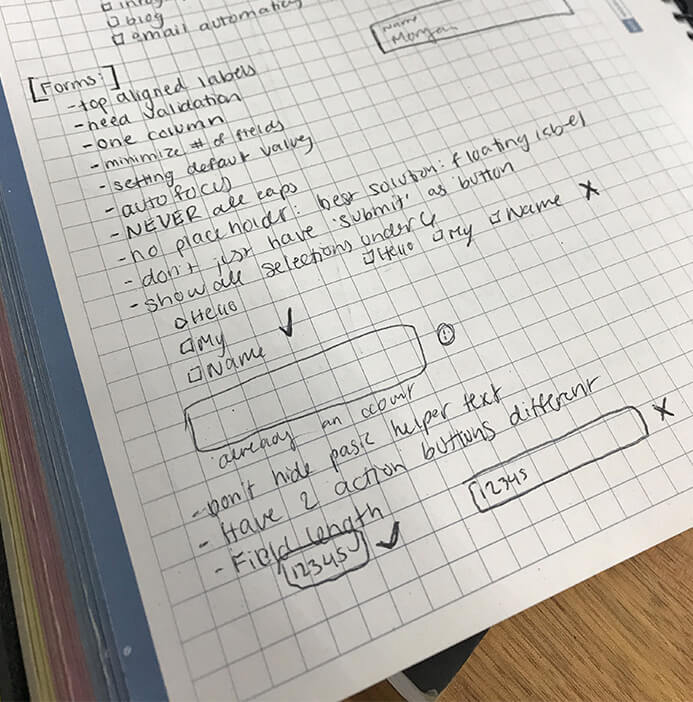 □ blog
□ email automatic
Name
Morgan
[Forms:]
- top aligned labels
- need validation
- one column
- minimize # of fields
- setting default values
- auto focus
- NEVER all caps
- no placeholder: best solution: floating label
- don't just have 'submit' as button
- show all selections under 6
□ Hello □ My □ Name X
□ Hello
□ My ✓
□ Name
already an account
- Don't hide basic helper text
- Have 2 action buttons different
- Field length
12345 X
12345 ✓